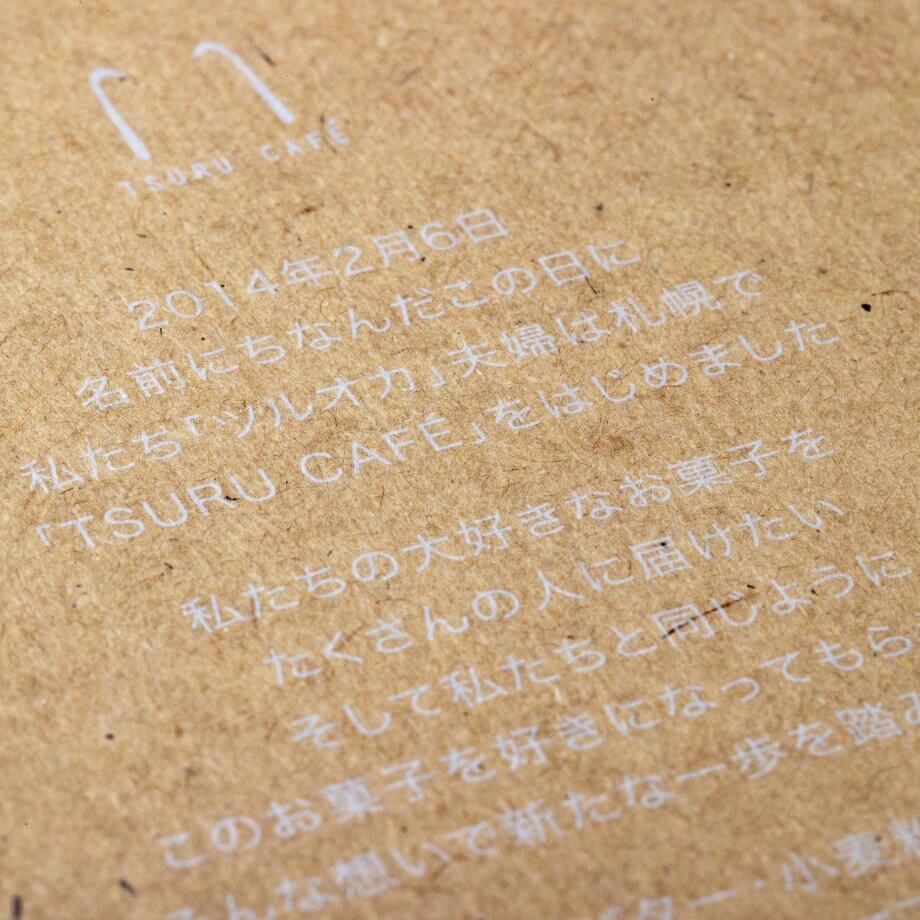 TSURU CAFÉ
2014年2月6日
名前にちなんだこの日に
私たち「ツルオカ」夫婦は札幌で
「TSURU CAFÉ」をはじめました
私たちの大好きなお菓子を
たくさんの人に届けたい
そして私たちと同じように
このお菓子を好きになってもら
んな想いで新たな一歩を踏み
ター・小麦粉